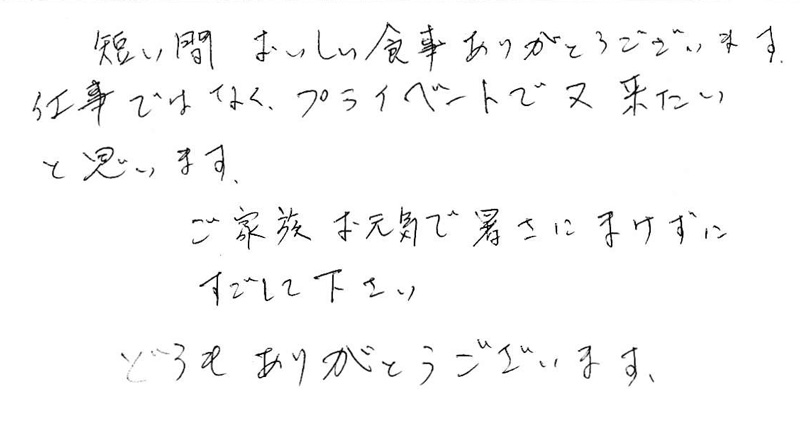 短い間 おいしい食事ありがとうございます。
仕事ではなく、プライベントで又来たい
と思います。
ご家族お元気で暑さにまけずに
すごして下さい
どうもありがとうございます、